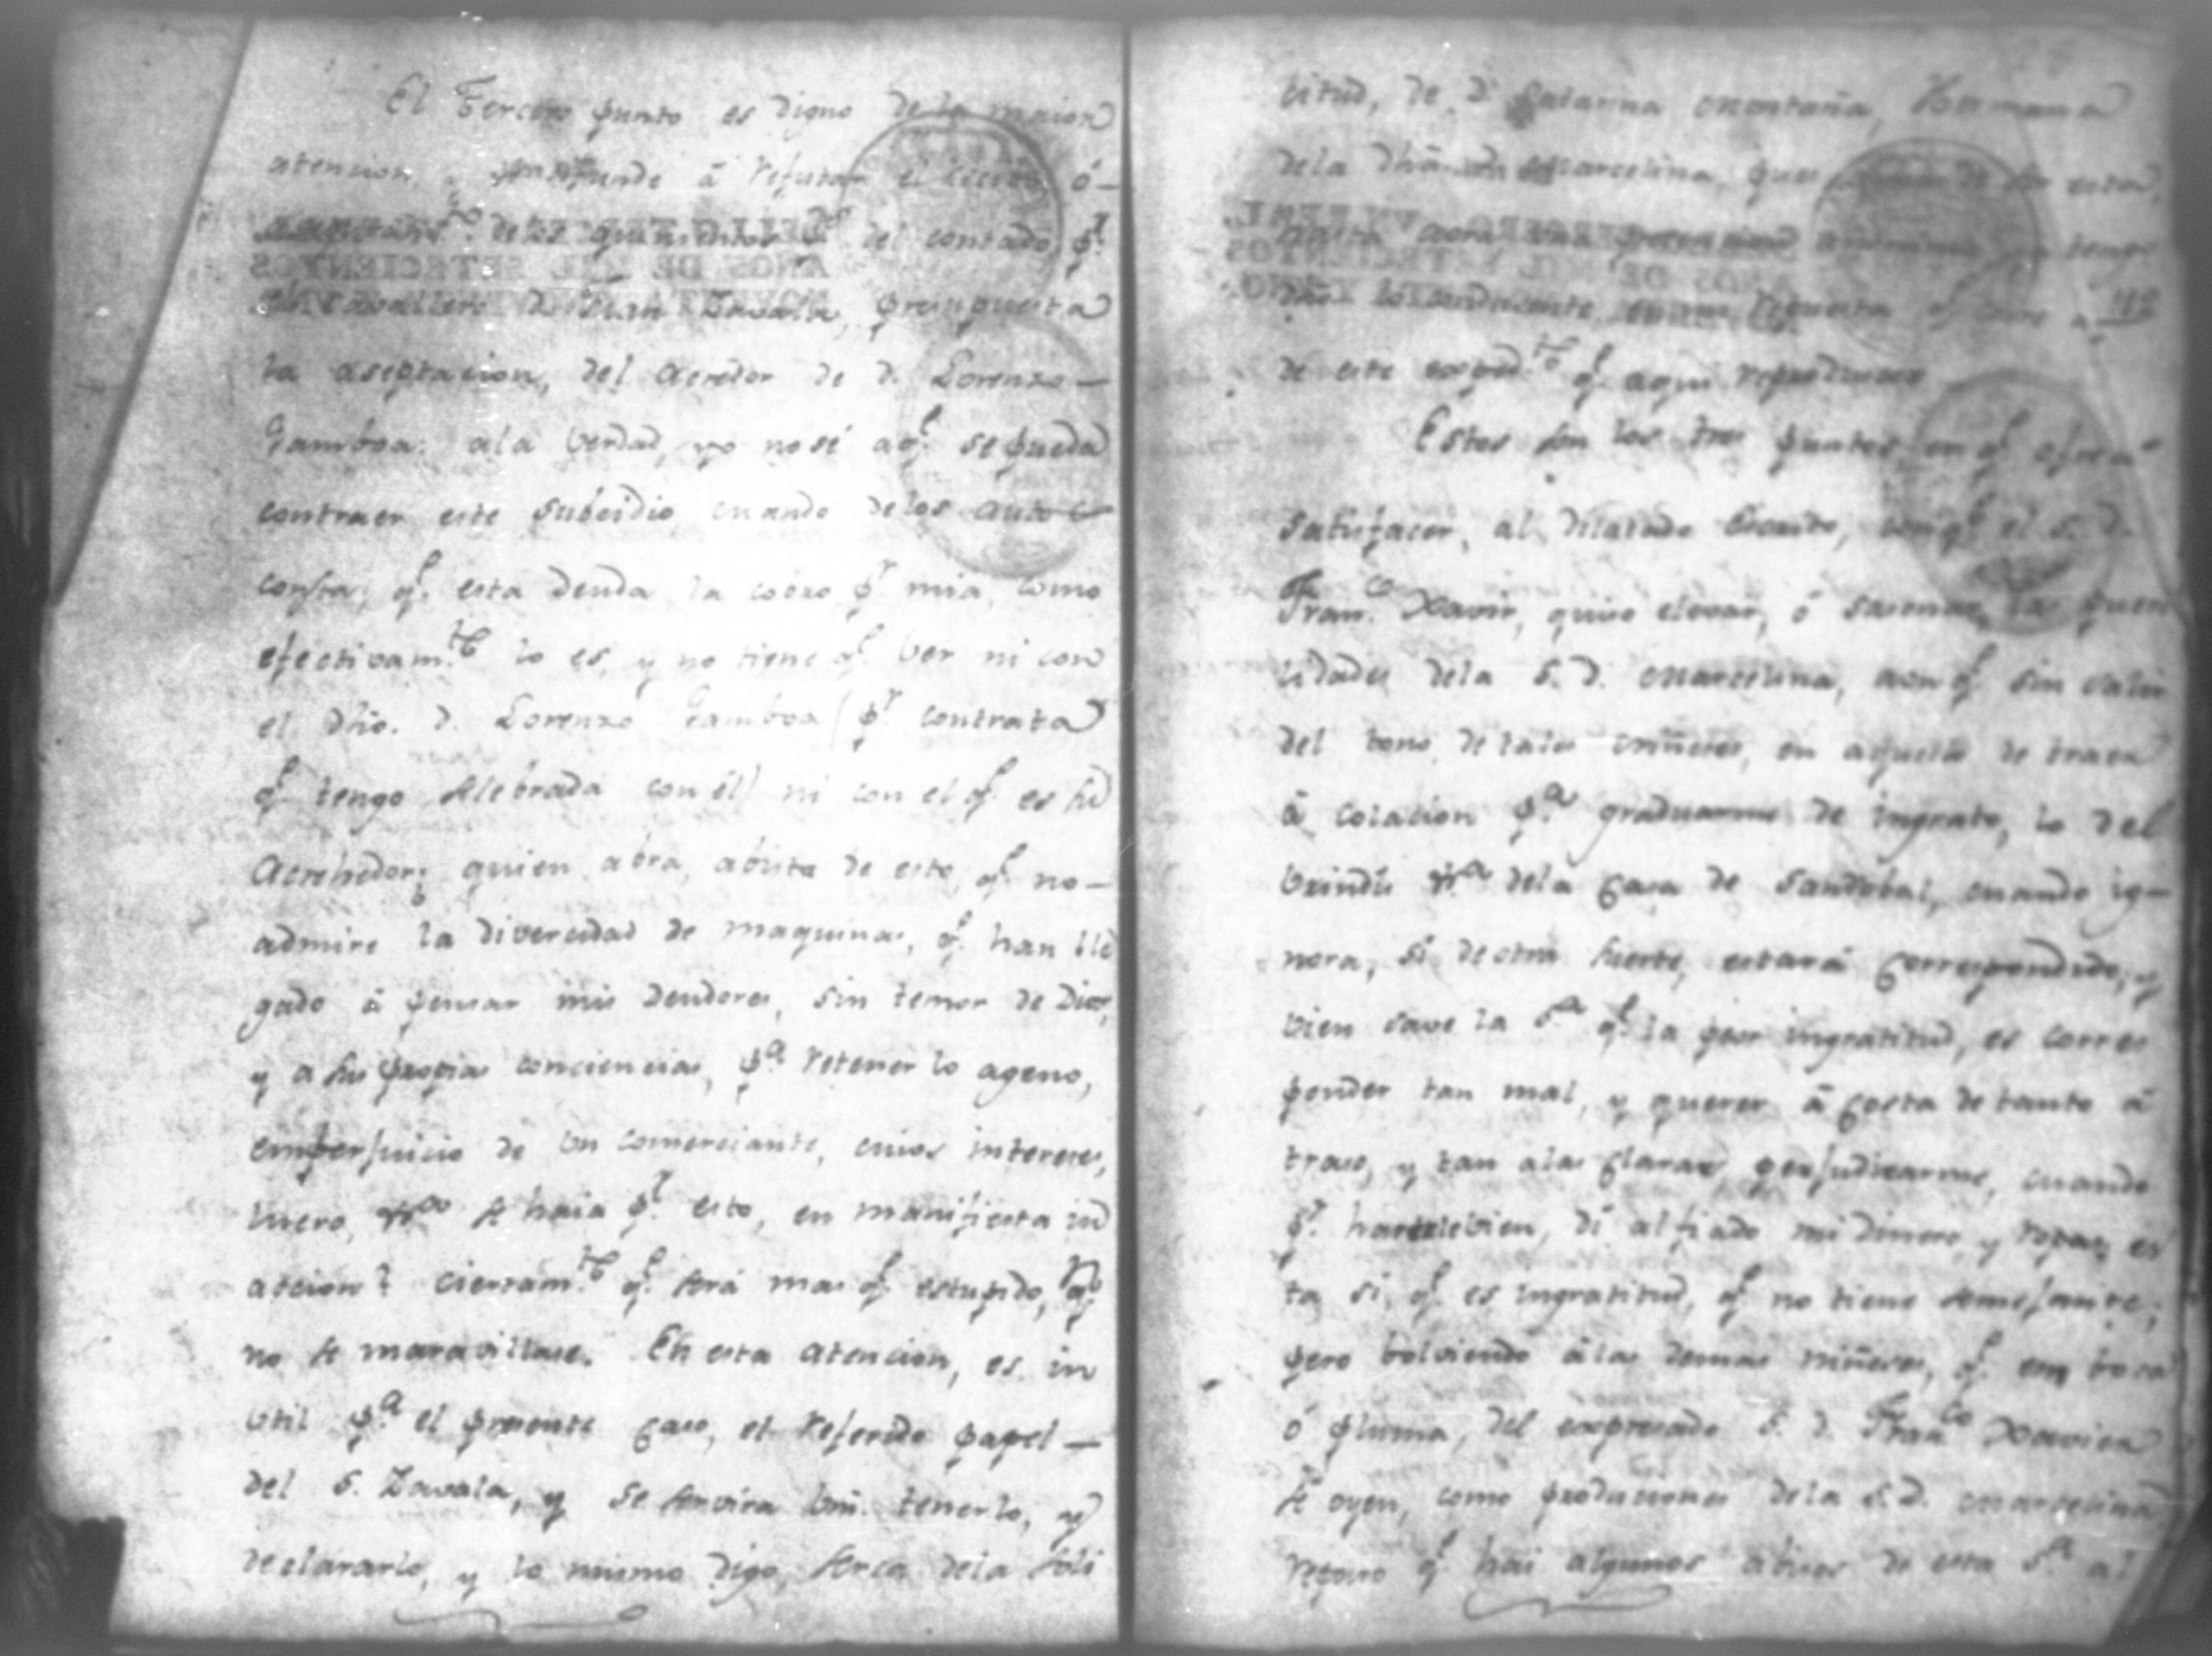 El Tercero punto es digno de la maior
atencion, y á refutar el ó-
de los del contado pr.
el Cavallero Dn. Zavala, prosupuesta
la aseptacion, del Acredor de D. Lorenzo-
Gamboa: ala verdad, yo no sé aqe. se pueda
contraer este subsidio, cuando delos autos
consta, qe. esta deuda la cobro pr. mia, como
efectivamte. lo es, y no tiene qe. ver ni con
el dho. D. Lorenzo Gamboa (pr. contrata
qe. tengo selebrada con él) ni con el qe. es su
Acrehedor; quien abra, abista de esto, qe. no-
admire la divercidad de maquinas, qe. han lle
gado á pensar mis deudores, sin temor de Dios,
y a sus propias conciencias, pa. retener lo ageno,
emperjuicio de un comerciante, cuios intereses,
lucro, se haia pr. esto, en manifiesta in
accion? cierramte. qe. será mas qe. estupido, qn.
no se maravillase. En esta atencion, es in
util pa. el presente caso, el referido papel-
del S. Zavala, y se servira Vm. tenerlo, y
declararlo, y lo mismo digo, serca dela soli
citud, de Da. Catarina Montaña, Hermana
dela dha. Marcelina, que
tengo
dho lo conducente, en mi repuesta qe. corre a 112
de este exped.to qe. aqui reproduzco
Estos son los tres puntos, en qe.
satisfacer, al dilatado Escrito, conqe. el S. D.
Franco. Xavier, quiso elevar, ó
lidades dela S. D. Marcelina, aun qe. sin salir
del tono, de tales, en aquella de traer
á colacion pa. graduarme de ingrato, lo del
brindis dela casa de Sandobal, cuando ig-
nora, si de otra suerte, estará correspondido, y
bien save la Sa. qe. la peor ingratitud, es corres
ponder tan mal, y querer á costa de tanto á
traso, y tan alas claras, perjudicarme, cuando
pr. hacerle bien, dí al fiado mi dinero, y ropas, es
ta si, qe. es ingratitud, qe. no tiene semejante;
pero bolviendo álas demas, qe. en boca
ó pluma, del expresado S. D. Franco. Xavier
se oyen, como producciones dela S. D. Marcelina
reparo qe. hai algunos de esta Sa. al